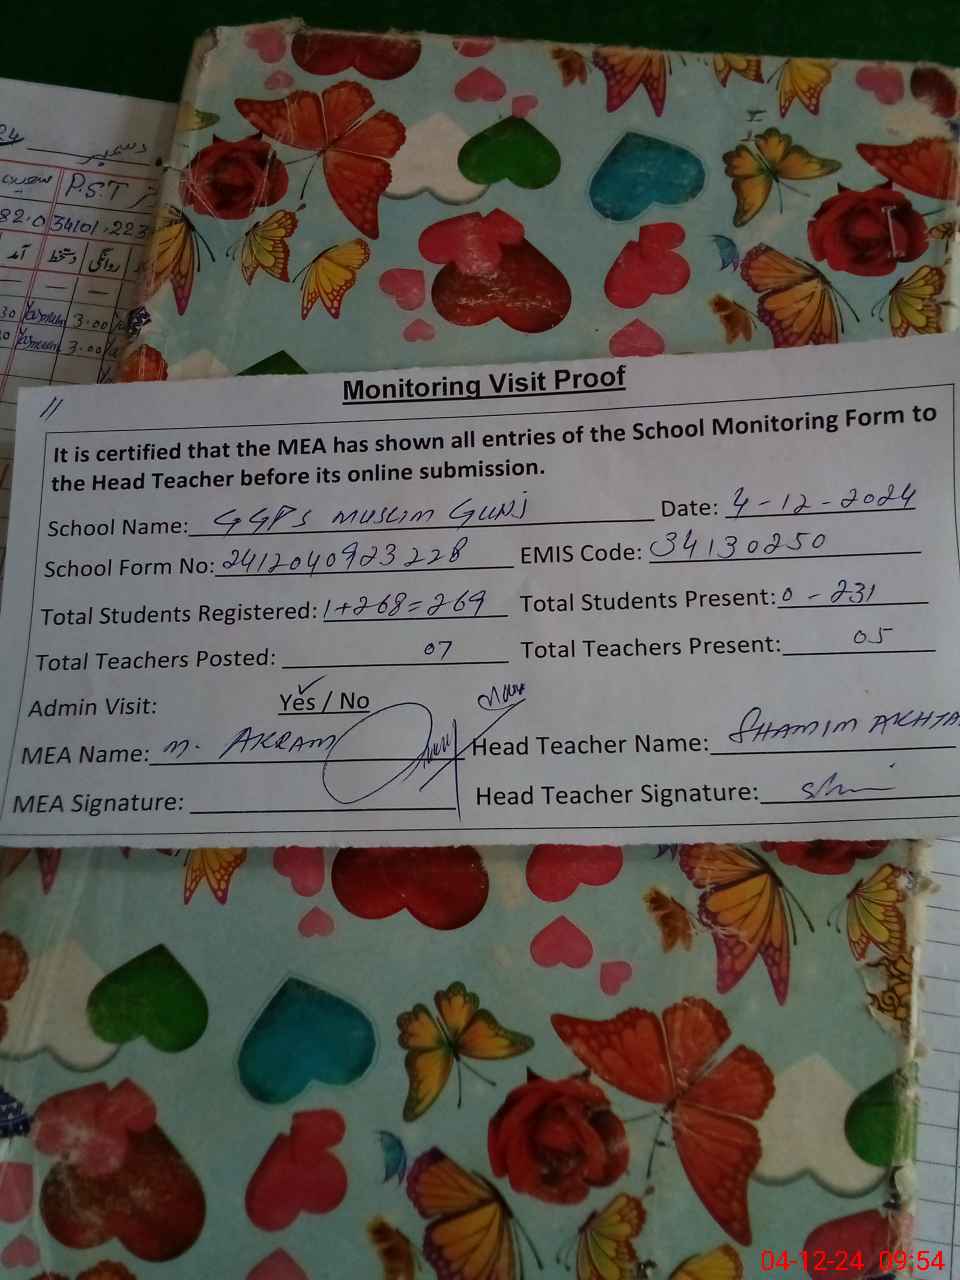 24 دسمبر
P.S.T
82.0 34101.223
آمد دستخط روانگی
30 3.00
3.00
Monitoring Visit Proof
It is certified that the MEA has shown all entries of the School Monitoring Form to
the Head Teacher before its online submission.
School Name: GGPS MUSLIM GUNJ Date: 4-12-2024
School Form No: 2412040923228 EMIS Code: 34130250
Total Students Registered: 1+268=269 Total Students Present: 0-231
Total Teachers Posted: 07 Total Teachers Present: 05
Admin Visit: Yes / No
MEA Name: M. AKRAM Head Teacher Name: SHAMIM AKHTA
MEA Signature: Head Teacher Signature:
04-12-24 09:54